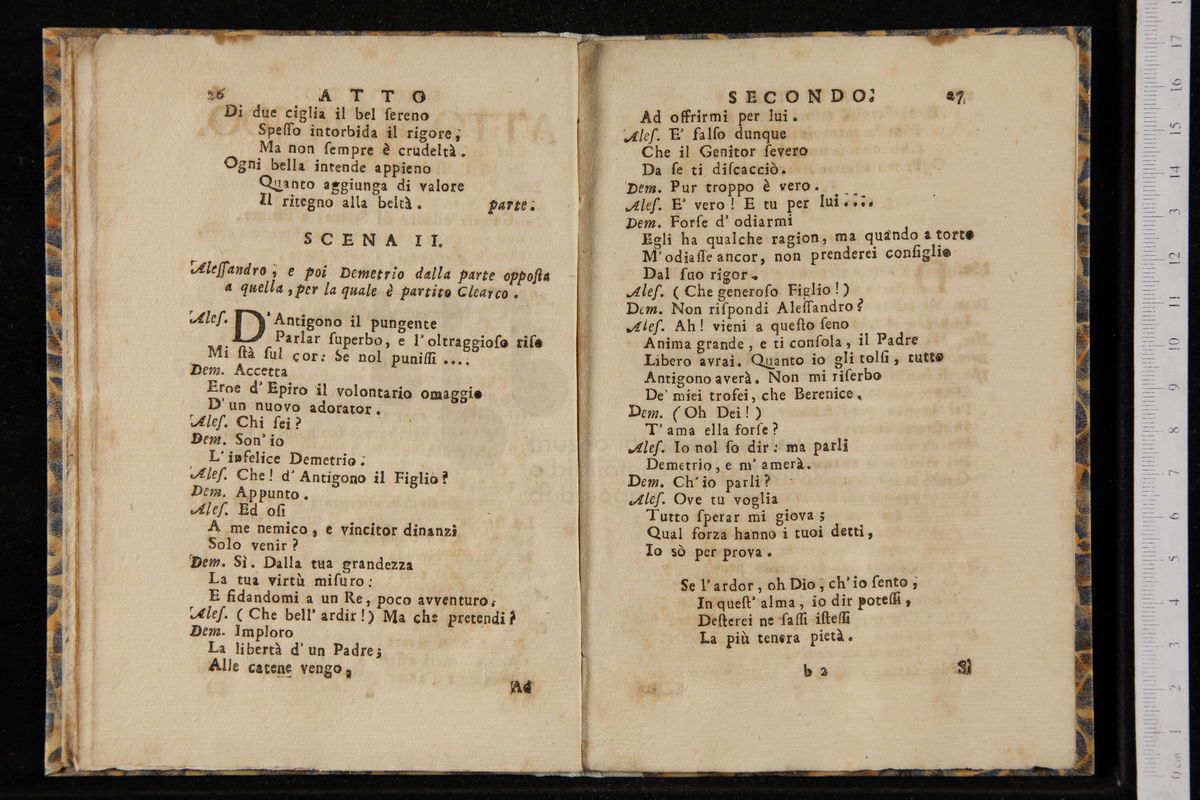 26 ATTO
Di due ciglia il bel ſereno
Speſſo intorbida il rigore,
Ma non ſempre è crudeltà.
Ogni bella intende appieno
Quanto aggiunga di valore
Il ritegno alla beltà. parte.
SCENA II.
Aleſſandro, e poi Demetrio dalla parte oppoſta
a quella, per la quale è partito Clearco.
Aleſ. D'Antigono il pungente
Parlar ſuperbo, e l'oltraggioſo riſo
Mi ſtà ſul cor: Se nol puniſſi ....
Dem. Accetta
Eroe d'Epiro il volontario omaggio
D'un nuovo adorator.
Aleſ. Chi ſei?
Dem. Son'io
L'infelice Demetrio.
Aleſ. Che! d'Antigono il Figlio?
Dem. Appunto.
Aleſ. Ed oſi
A me nemico, e vincitor dinanzi
Solo venir?
Dem. Sì. Dalla tua grandezza
La tua virtù miſuro:
E fidandomi a un Re, poco avventuro.
Aleſ. (Che bell' ardir!) Ma che pretendi?
Dem. Imploro
La libertà d'un Padre;
Alle catene vengo,
Ad
SECONDO. 27
Ad offrirmi per lui.
Aleſ. E' falſo dunque
Che il Genitor ſevero
Da ſe ti diſcacciò.
Dem. Pur troppo è vero.
Aleſ. E' vero! E tu per lui....
Dem. Forſe d'odiarmi
Egli ha qualche ragion, ma quando a torto
M'odiaſſe ancor, non prenderei conſiglio
Dal ſuo rigor.
Aleſ. (Che generoſo Figlio!)
Dem. Non riſpondi Aleſſandro?
Aleſ. Ah! vieni a queſto ſeno
Anima grande, e ti conſola, il Padre
Libero avrai. Quanto io gli tolſi, tutto
Antigono averà. Non mi riſerbo
De' miei trofei, che Berenice.
Dem. (Oh Dei!)
T'ama ella forſe?
Aleſ. Io nol ſo dir: ma parli
Demetrio, e m'amerà.
Dem. Ch'io parli?
Aleſ. Ove tu voglia
Tutto ſperar mi giova;
Qual forza hanno i tuoi detti,
Io sò per prova.
Se l'ardor, oh Dio, ch'io ſento,
In queſt' alma, io dir poteſſi,
Deſterei ne ſaſſi iſteſſi
La più tenera pietà.
b 2 Sì
0 cm 1 2 3 4 5 6 7 8 9 10 11 12 13 14 15 16 17